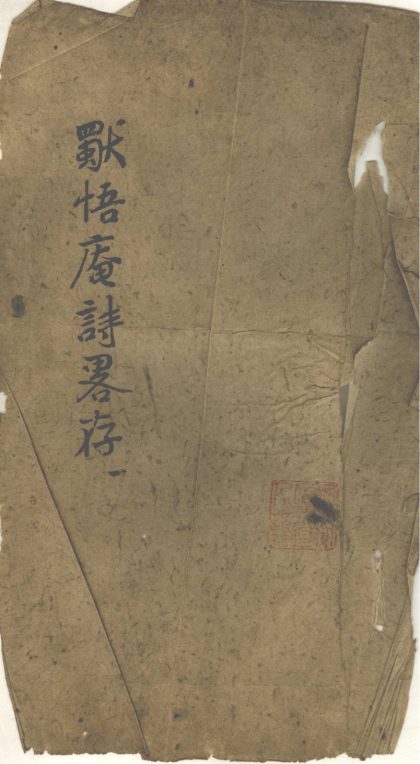 獨悟庵詩畧存一